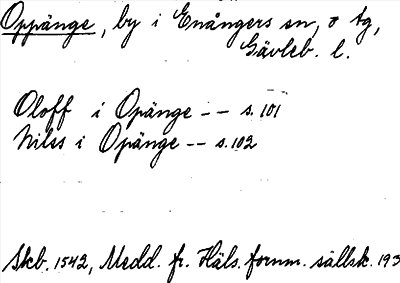 Oppänge, by i Enångers sn, o tg,
Gävleb. l.
Oloff i Opänge -- s. 101
Niles i Opänge -- s. 102
Skb. 1542, Medd. fr. Häls. fornm. sällsk. 193